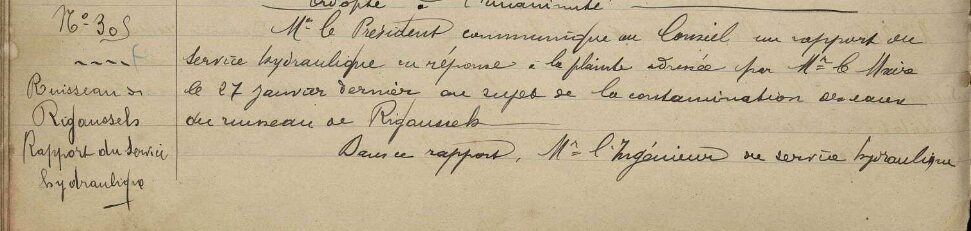 adopté à l'unanimité
N° 305
Mr le Président communique au Conseil un rapport du
service hydraulique en réponse à la plainte adressée par Mr le Maire
Ruisseau de
le 27 janvier dernier au sujet de la contamination des eaux
Rigaussels
du ruisseau de Rigaussels
Rapport du Service
Dans ce rapport, Mr l'Ingénieur du service hydraulique
hydraulique